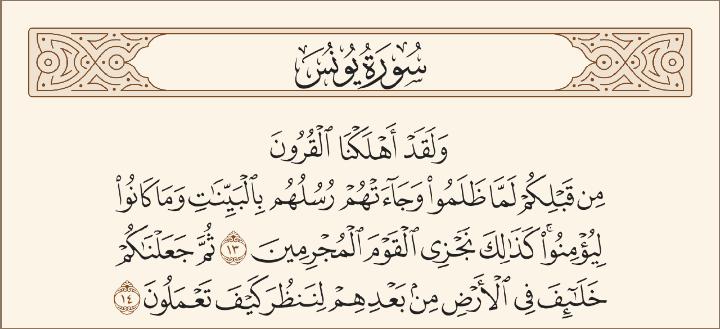 سُورَةُ يُونُسَ
وَلَقَدۡ أَهۡلَكۡنَا ٱلۡقُرُونَ
مِن قَبۡلِكُمۡ لَمَّا ظَلَمُواْ وَجَآءَتۡهُمۡ رُسُلُهُم بِٱلۡبَيِّنَٰتِ وَمَا كَانُواْ
لِيُؤۡمِنُواْۚ كَذَٰلِكَ نَجۡزِي ٱلۡقَوۡمَ ٱلۡمُجۡرِمِينَ ١٣ ثُمَّ جَعَلۡنَٰكُمۡ
خَلَٰٓئِفَ فِي ٱلۡأَرۡضِ مِنۢ بَعۡدِهِمۡ لِنَنظُرَ كَيۡفَ تَعۡمَلُونَ ١٤